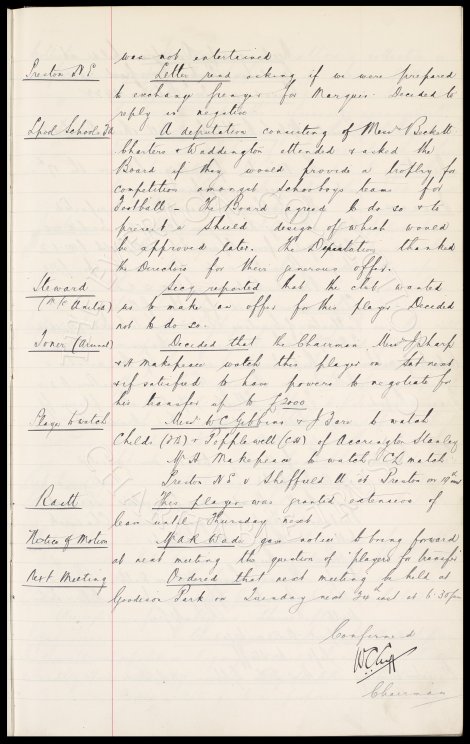 was not entertained
Preston N.E. Letter read asking if we were prepared
to exchange for Marquis. Decided to
reply in negative
Lpool Schools A deputation consisting of Messrs Beckett
Charters & Waddington attended & asked the
Board if they would provide a trophy for
competition amongst Schoolboys teams for
Football – The Board agreed to do so & to
present a Shield design of which would
be approved later. The Deputation thanked
the Directors for their generous offer.
Steward Secy reported that the club wanted
(M/C United) us to make an offer for this player Decided
not to do so.
Toner (Arsenal) Decided that the Chairman Messrs J Sharp
& A Makepeace watch this player on Sat next
& if satisfied to have powers to negotiate for
his transfer up to £2000
Player to watch Messrs W.C. Gibbins & J Fare to watch
Childs (F.B) & Popplewell (C.H) of Accrington Stanley
Mr A Makepeace to watch Ch match
Preston N.E v Sheffield U. at Preston on inst
Raitt This player was granted extension of
leave until Thursday next
Notice of Motion Mr A R Wade gave notice to bring forward
at next meeting the question of "players for transfer"
Next Meeting Ordered that next meeting be held at
Goodison Park on Tuesday next 24 inst at 6.30pm
Confirmed
W.C.Cuff
Chairman